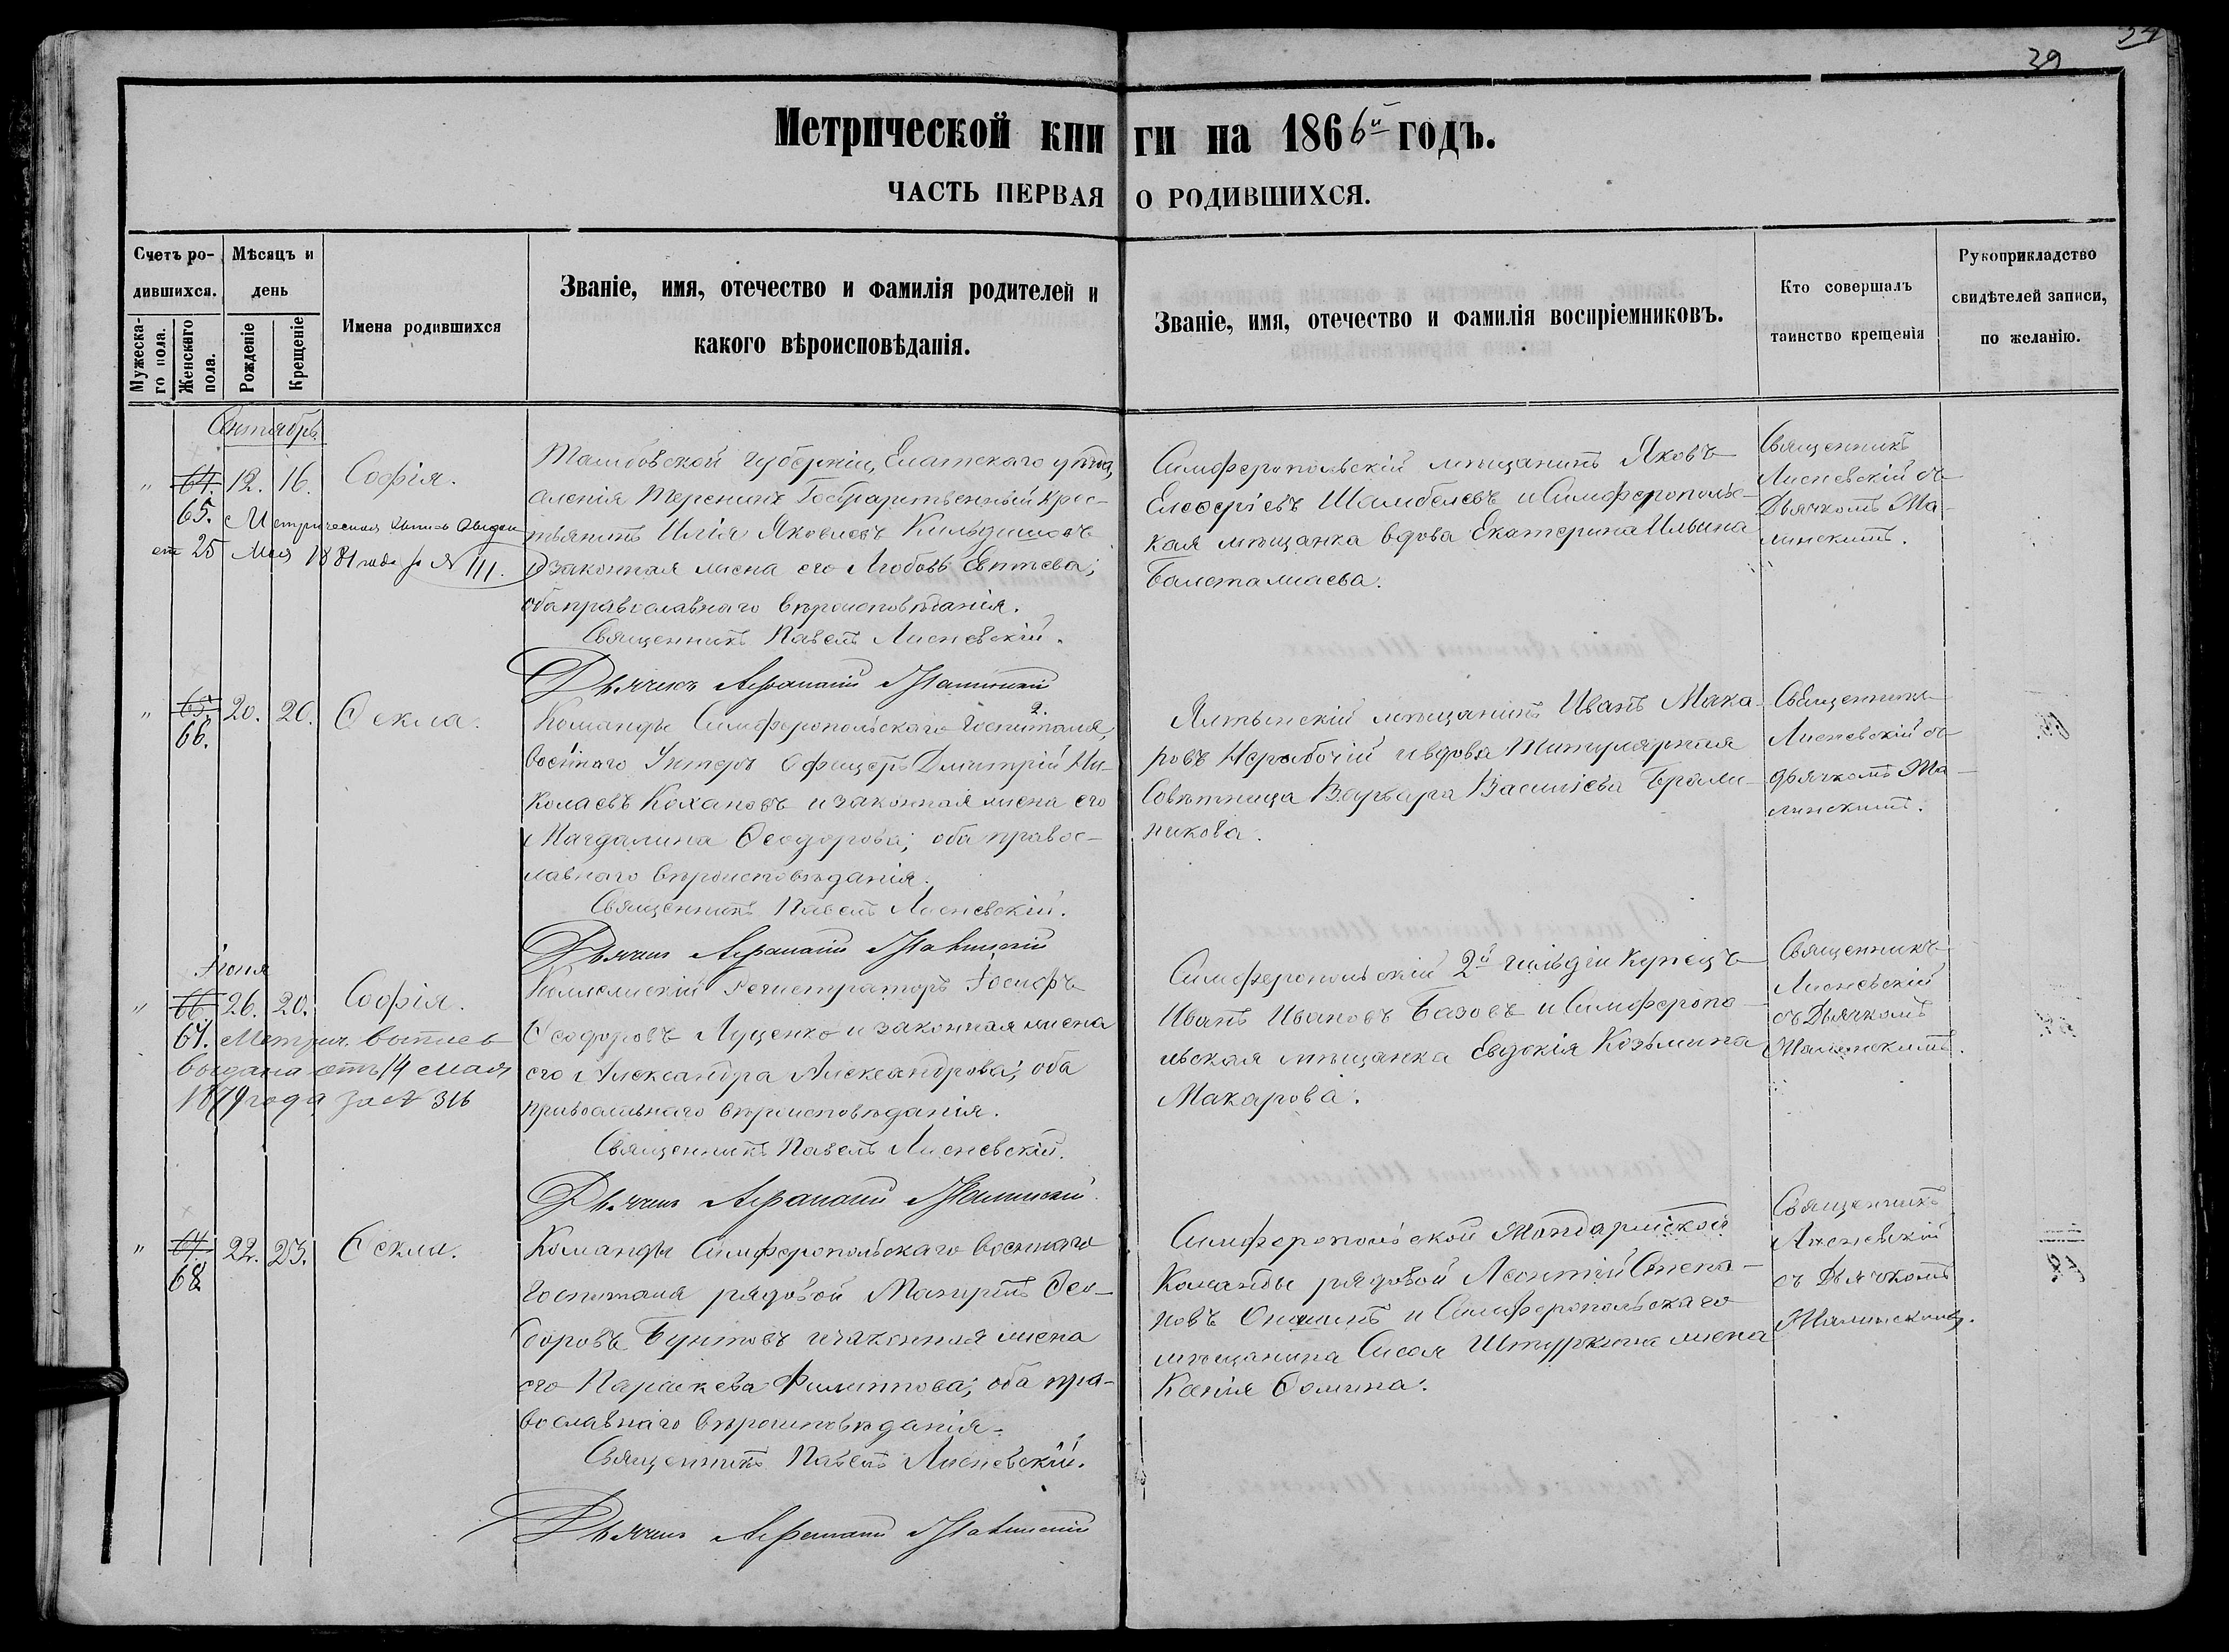 39
Метрической кни ги на 1866й годъ.
ЧАСТЬ ПЕРВАЯ О РОДИВШИХСЯ.
Счетъ ро-
дившихся.
Мужеска-
го пола.
Женскаго
пола.
Мѣсяцъ и
день
Рожденіе
Крещеніе
Имена родившихся
Званіе, имя, отечество и фамилія родителей и
какого вѣроисповѣданія.
Званіе, имя, отечество и фамилія воспріемниковъ.
Кто совершалъ
таинство крещенія
Рукоприкладство
свидѣтелей записи,
по желанію.
Сентябрь
" 64. 12. 16. Софія.
65.
Метрическая выпись выдана
от 25 Мая 1881 года за № 111.
Тамбовской губерніи, Елатскаго уѣзда,
селенія Теренина Государственный крес-
тьянинъ Илія Яковлевъ Кильдишовъ
и законная жена его Любовь
оба православнаго вѣроисповѣданія.
Священникъ Павелъ Лисневскій.
Дьячекъ Афанасій Малинскій
Симферопольскій мѣщанинъ Яковъ
Елеферіевъ Шамбелевъ и Симферопольс-
кая мѣщанка вдова Екатерина Ильина
Священникъ
Лисневскій съ
Дьячкомъ Ма-
линскимъ.
" 65. 20. 20. Ѳекла.
66.
Команды Симферопольскаго госпиталя,
военнаго Унтеръ Офицеръ Димитрій Ни-
колаевъ Кохановъ и законная жена его
Магдалина Ѳеодорова; оба правос-
лавнаго вѣроисповѣданія.
Священникъ Павелъ Лисневскій.
Дьячекъ Афанасій Малинскій
Ялтынскій мѣщанинъ Иванъ Мака-
ровъ Нерабочій и вдова Титулярная
Совѣтница Варвара Васильева
никова.
Священникъ
Лисневскій съ
дьячкомъ Ма-
линскимъ.
Іюня
" 66. 26. 20. Софія.
67. Метрич. выпись
выдана отъ 14 мая
1879 года за № 316
Коллежскій Регистраторъ Іосифъ
Ѳеодоровъ Луценко и законная жена
его Александра Александрова; оба
православнаго вѣроисповѣданія.
Священникъ Павелъ Лисневскій.
Дьячекъ Афанасій Малинскій
Симферопольскій 2й гильдіи Купецъ
Иванъ Ивановъ Базовъ и Симферопо-
льская мѣщанка Евдокія Козьмина
Макарова.
Священникъ
Лисневскій
съ Дьячкомъ
Малинскимъ.
" 67. 22. 23. Ѳекла.
68
Команды Симферопольскаго военнаго
госпиталя рядовой Ѳео-
доровъ Бунтовъ и законная жена
его Параскева Филиппова; оба пра-
вославнаго вѣроисповѣданія.
Священникъ Павелъ Лисневскій.
Дьячекъ Афанасій Малинскій
Симферопольской Жандармской
Команды рядовой Леонтій Степа-
новъ и Симферопольскаго
мѣщанина Сисоя жена
Ксенія Ѳомина.
Священникъ
Лисневскій
съ Дьячкомъ
Малинскимъ.